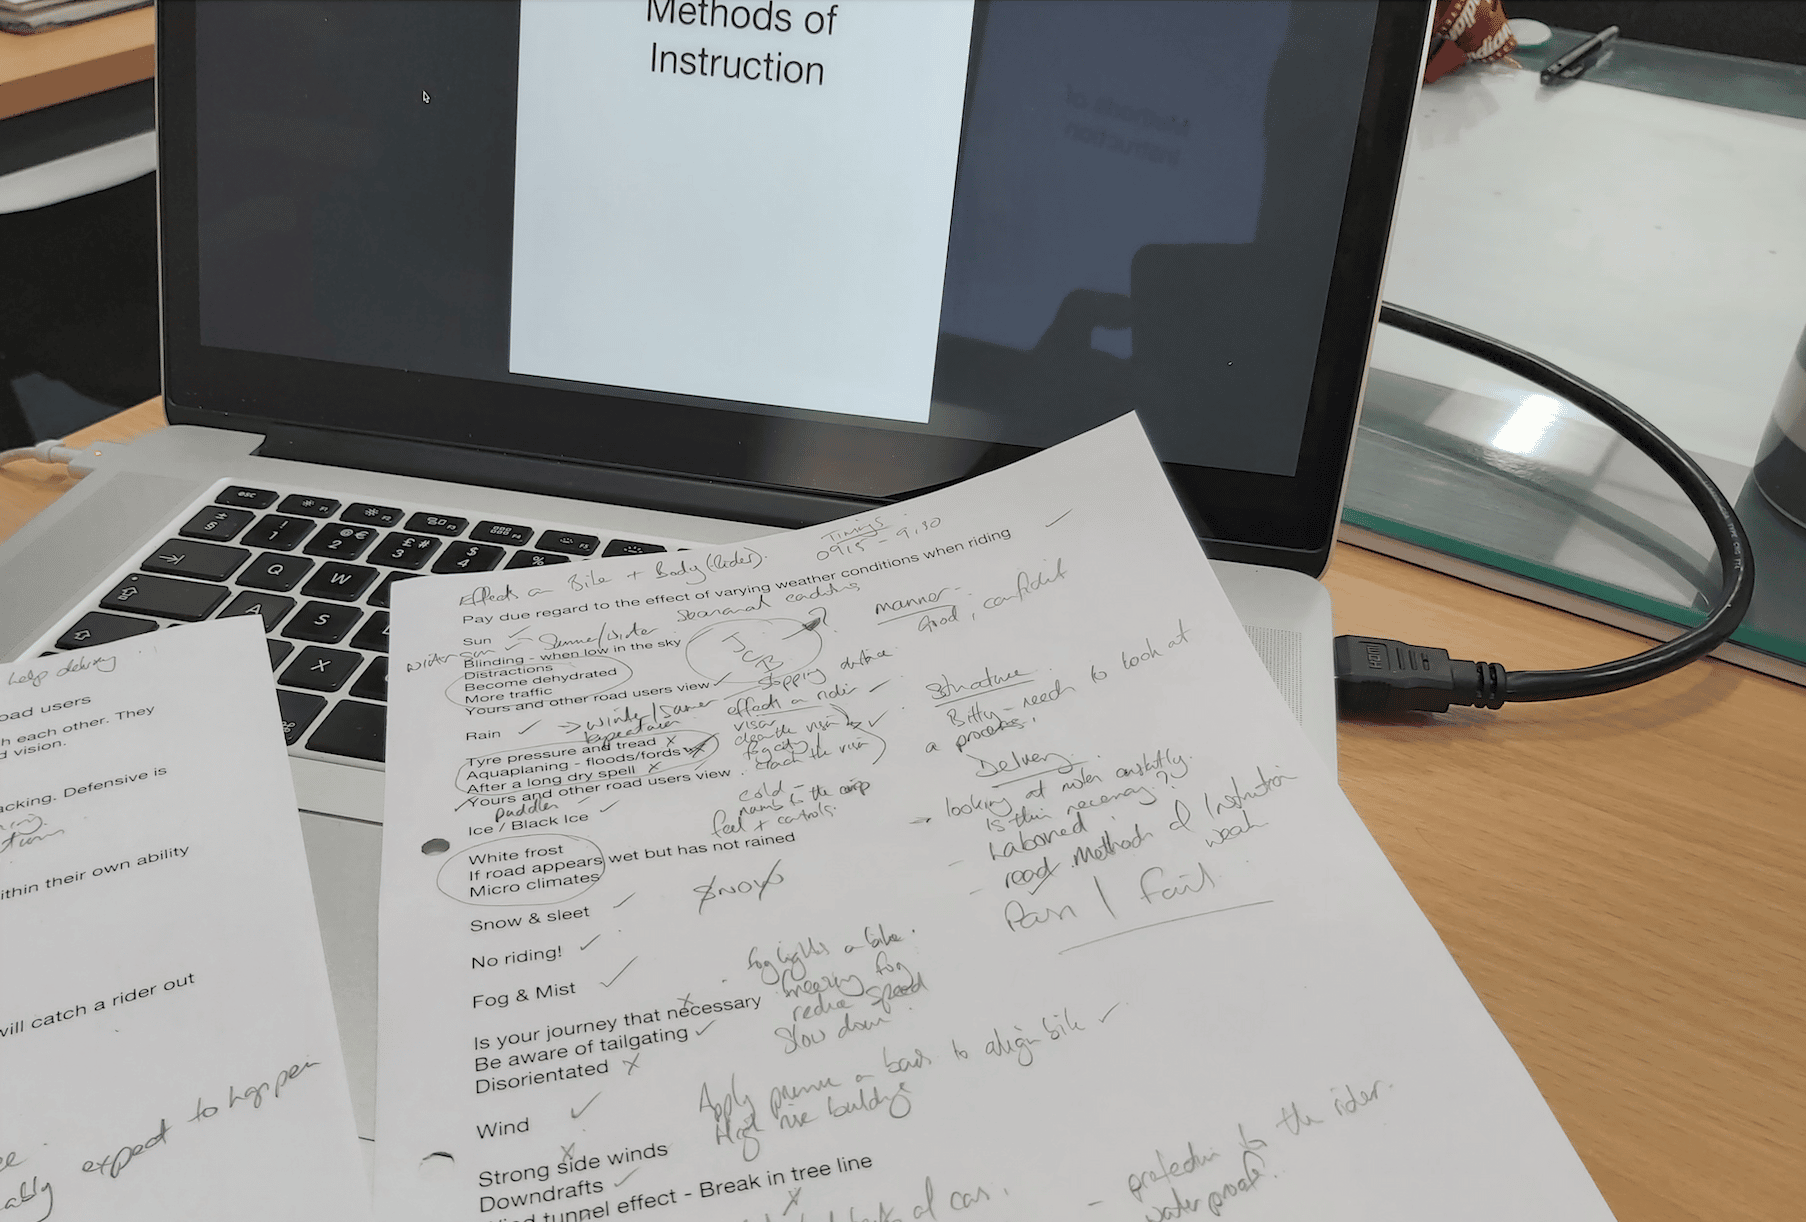 Methods of
Instruction
HDMI
esc
Q
W
A
S
X
help delivery
oad users
h each other. They
d vision.
acking. Defensive is
ithin their own ability
will catch a rider out
expect to happen
ably
Effects on Bike + Body (Rider).
Timings
0915 - 9.30
Pay due regard to the effect of varying weather conditions when riding
Sun
Blinding - when low in the sky
Distractions
Become dehydrated
More traffic
Yours and other road users view
JCB
stopping distance
Rain
winter/summer
effects on rider
visor
Tyre pressure and tread
Aquaplaning - floods/fords
After a long dry spell
Yours and other road users view
puddles
cold -
numb to the
feel + controls.
Ice / Black Ice
White frost
If road appears wet but has not rained
Micro climates
Snow & sleet
No riding!
Fog & Mist
Is your journey that necessary
Be aware of tailgating
Disorientated
Fog lights on bike.
freezing fog
reduce speed
Slow down
Wind
Apply pressure on bars to align bike
High rise buildings
Strong side winds
Downdrafts
tunnel effect - Break in tree line
of car.
manner -
Good, confident
Structure
Bitty - need to look at
a process.
Delivery
looking at notes constantly.
is this necessary?
Laboured
read. Methods of Instruction
weak
Pass / Fail
- protection for the rider.
waterproofs.